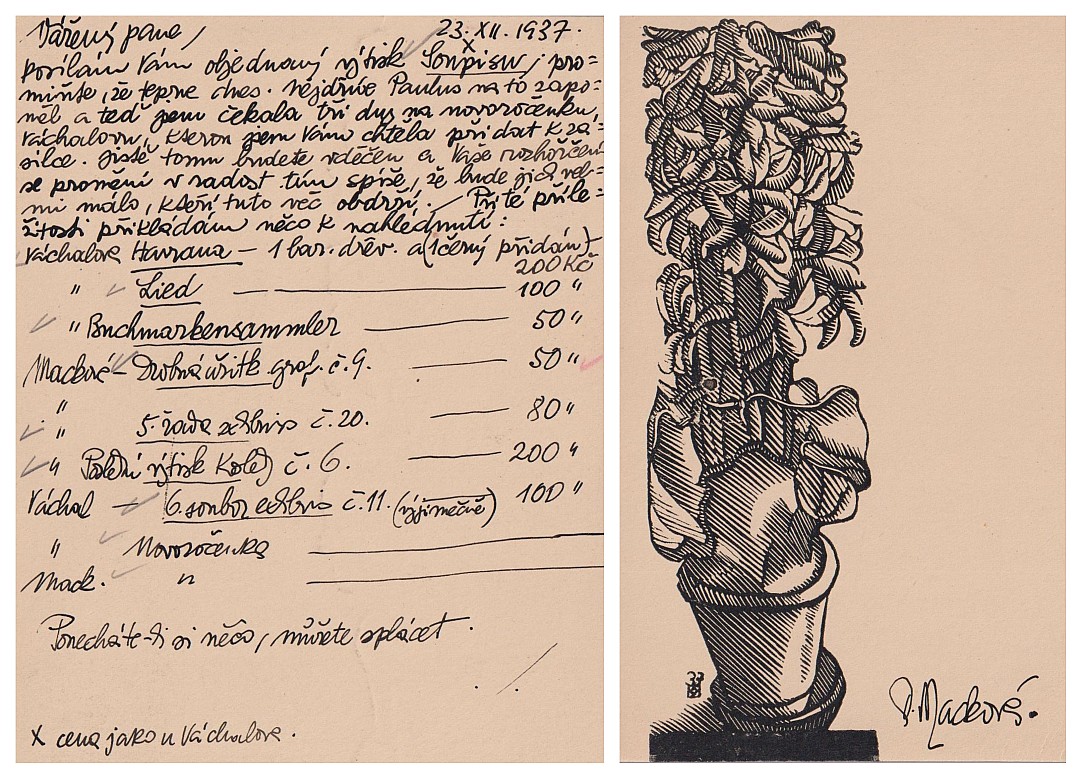 Vážený pane, 23. XII. 1937.
posílám Vám objednaný výtisk Soupisu x; pro=
miňte, že teprve dnes. Nejdříve Paulus na to zapo=
něl a teď jsem čekala tři dny na novoročenku,
Váchalovu, kterou jsem Vám chtěla přidat k zá=
silce. Jistě tomu budete vděčen a Vaše rozhořčení
se promění v radost tím spíše, že bude jich vel=
mi málo, kteří tuto věc obdrží. / Při té příle=
žitosti přikládám něco k nahlédnutí:
Váchalova Havrana — 1 bar. dřev. a (1 černý přidán)
200 Kč
" Lied — 100 "
" Buchmarkensammler — 50 "
Mackové — Drobná užitk. graf. č. 9. — 50 "
" 5. řada exlibris č. 20. — 80 "
" " Poslední výtisk Koled č. 6. — 200 "
Váchal — 6. soubor exlibris č. 11. (výjimečně) 100 "
" Novoročenka —
Mack. " —
Ponecháte-li si něco, můžete splácet.
x cena jako u Váchalova.
33
D. Macková.